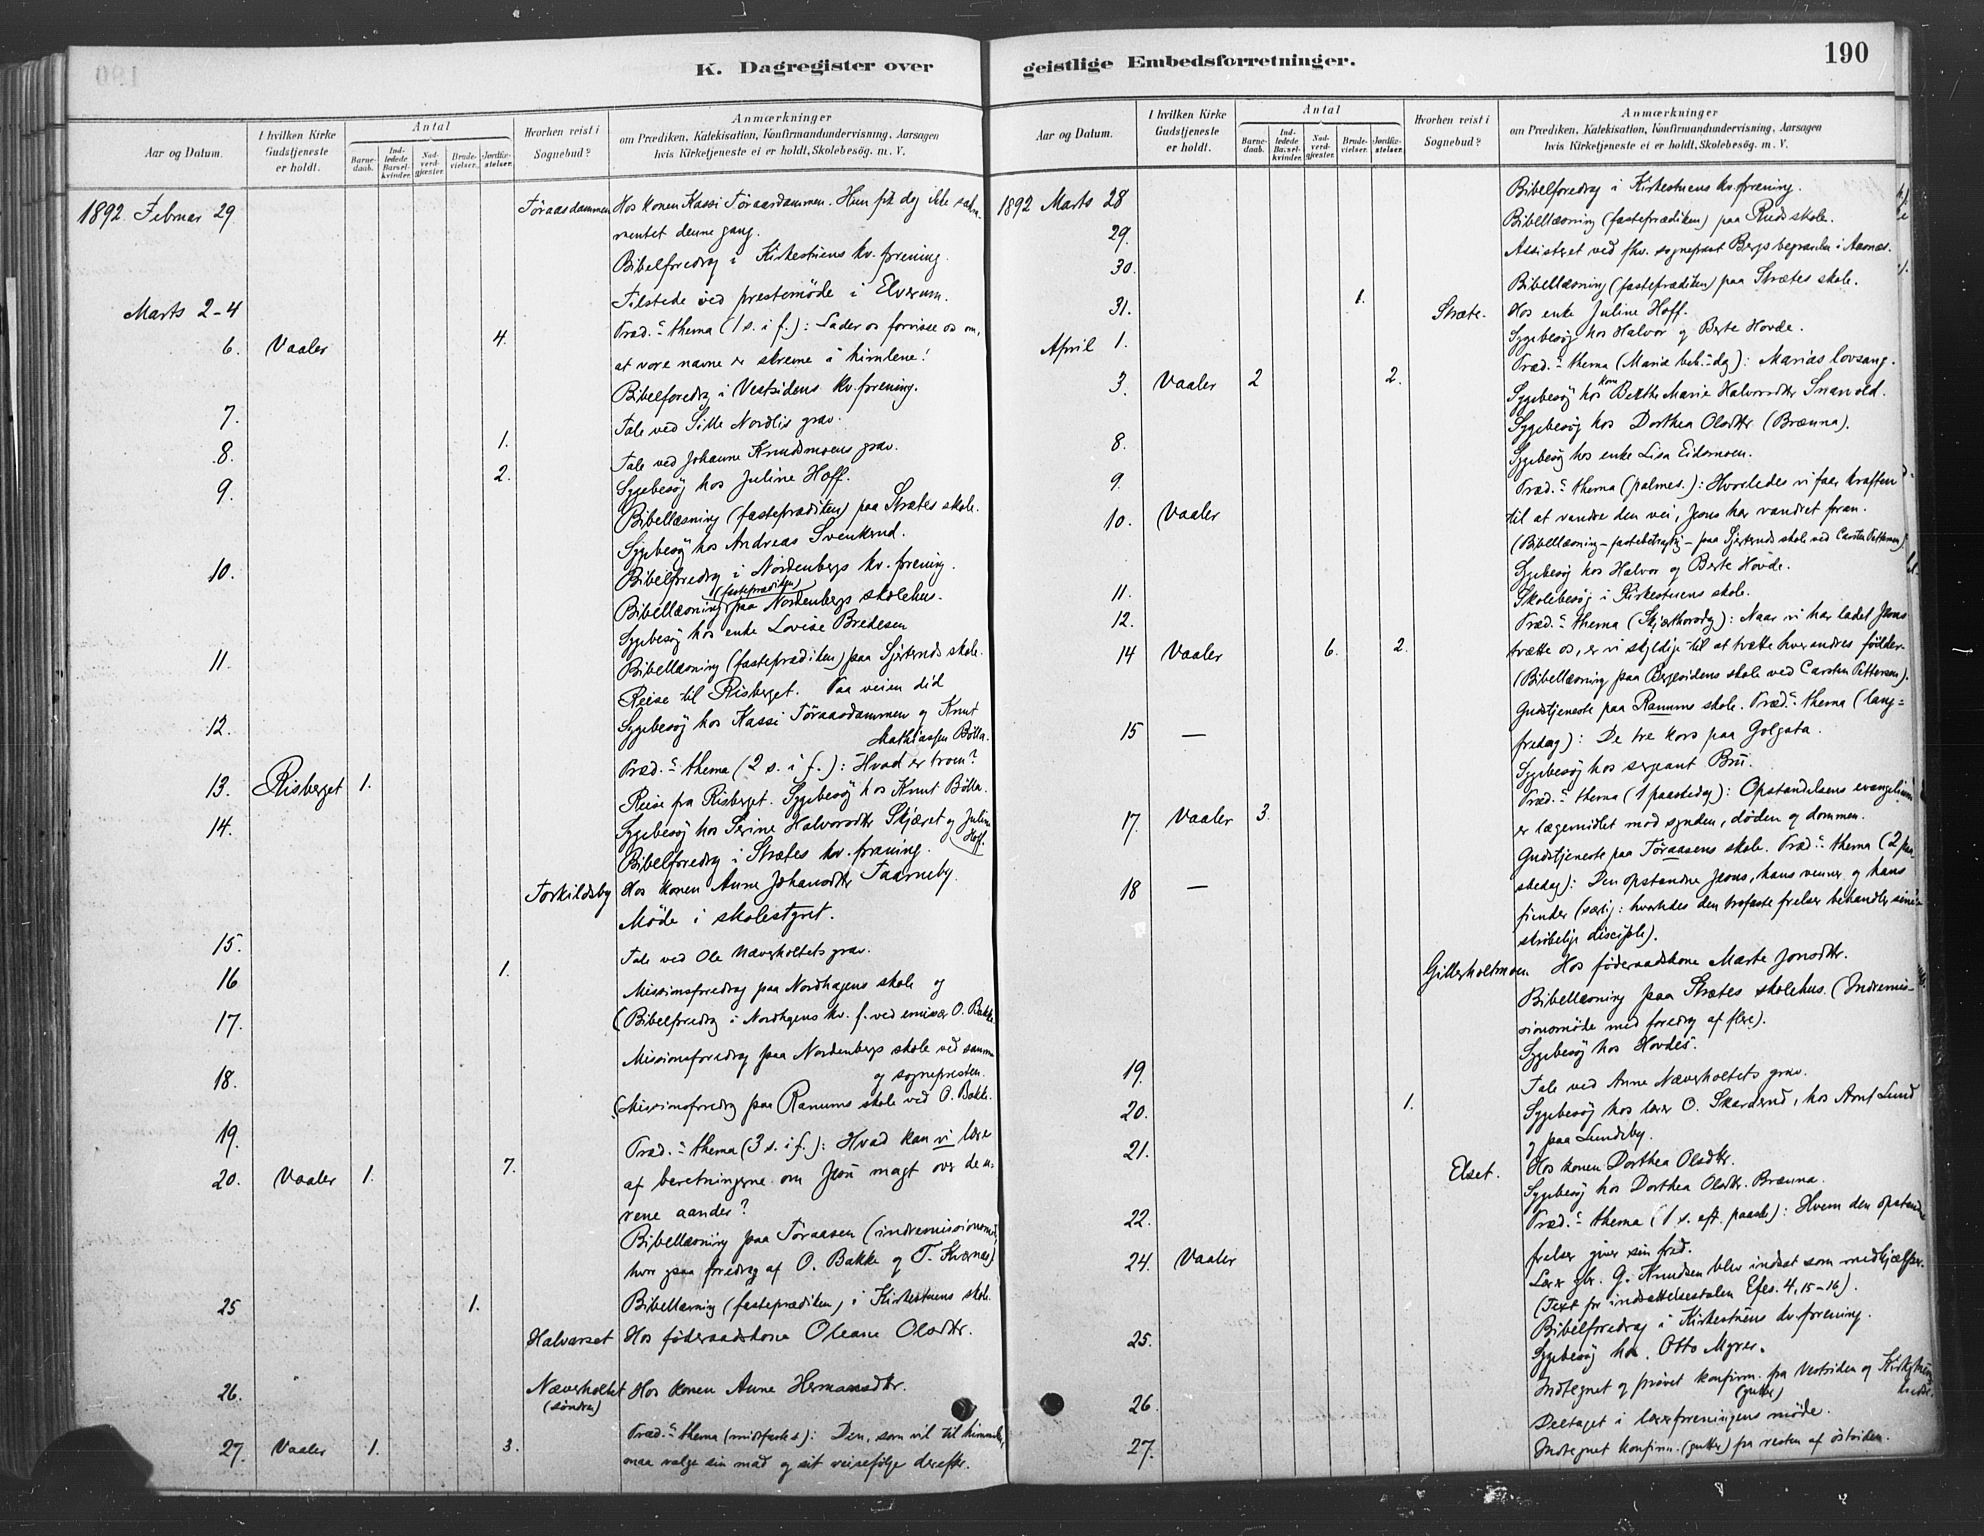 K. Dagregister over
Aar og Datum.
I hvilken Kirke Gudstjeneste er holdt.
Antal
Barnedaab.
Indledede Barselkvinder.
Nadverdgjæster.
Brudevielser.
Jordfæstelser.
Hvorhen reist i Sognebud?
Anmærkninger
om Prædiken, Katekisation, Konfirmandundervisning, Aarsagen
hvis Kirketjeneste ei er holdt, Skolebesög. m. V.
1892 Februar 29 Töraasdammen Hos konen Kassi Töraasdammen. Hun fik dog ikke sakra-
mentet denne gang.
Bibelforedrag i Kirkestuens kv. forening.
Marts 2-4 Tilstede ved prestemöde i Elverum.
6. Vaaler 4. Præd.s thema (1 s. i f.): Lader os forvisse os om,
at vore navne er skrevne i himlene!
Bibelforedrag i Vestsidens kv. forening.
7. Tale ved Sille Nordlis grav.
8. 1. Tale ved Johanne Knudsmoens grav.
9. 2. Sygebesög hos Juline Hoff.
Bibellæsning (fasteprædiken) paa Strætes skole.
Sygebesög hos Andreas Svenkerud.
10. Bibelforedrag i Nordenbergs kv. forening.
Bibellæsning (fasteprædiken) paa Nordenbergs skolehus.
Sygebesög hos enke Lovise Bredesen
11. Bibellæsning (fasteprædiken) paa Sjöteruds skole.
Reise til Risberget. Paa veien did
12. Sygebesög hos Kassi Töraasdammen og Knut
Mathiassen Bölla.
13. Risberget 1. Præd.s thema (2 s. i f.): Hvad er troen?
Reise fra Risberget. Sygebesög hos Knut Bölla.
14. Sygebesög hos Serine Halvorsdtr Skjæret og Juline
Hoff.
Bibelforedrag i Strætes kv. forening.
Torkildsby Hos konen Anne Johansdtr Taarneby.
Möde i skolestyret.
15. Tale ved Ole Næverholtets grav.
16 1. Missionsforedrag paa Nordhagens skole og
17. (Bibelforedrag i Nordhagens kv. f. ved emissær O. Bakke.
Missionsforedrag paa Nordenbergs skole ved samme
18. og sognepresten.
(Missionsforedrag paa Ranums skole ved O. Bakke.
19.
20. Vaaler 1. 7. Præd.s thema (3 s. i f.): Hvad kan vi lære
af beretningerne om Jesu magt over de u-
rene aander?
Bibellæsning paa Töraasen (indremissionsmöde,
hvor ogsaa foredrag af O. Bakke og T. Kværnæs)
25 1. Bibellæsning (fasteprædiken) i Kirkestuens skole.
Halvorset Hos föderaadskone Oleane Olsdtr.
26. Næverholtet (söndre) Hos konen Anne Hermansdtr.
27. Vaaler 1. 3. Præd.s thema (midfaste s): Den, som vil til himmelen,
maa vælge sin mad og sit veisefölge derefter.
geistlige Embedsforretninger.
190
Aar og Datum.
I hvilken Kirke Gudstjeneste er holdt.
Antal
Barnedaab.
Indledede Barselkvinder.
Nadverdgjæster.
Brudevielser.
Jordfæstelser.
Hvorhen reist i Sognebud?
Anmærkninger
om Prædiken, Katekisation, Konfirmandundervisning, Aarsagen
hvis Kirketjeneste ei er holdt, Skolebesög. m. V.
1892 Marts 28 Bibelforedrag i Kirkestuens kv. forening.
Bibellæsning (fasteprædiken) paa Ruds skole.
29. Assisteret ved fhv. sogneprest Bergs begravelse i Aasnæs.
30. Bibellæsning (fasteprædiken) paa Strætes skole.
31. 1. Stræte. Hos enke Juline Hoff.
April 1. Sygebesög hos Halvor og Berte Hovde.
3. Vaaler 2 2. Præd.s thema (Mariæ beb.-dag): Marias lovsang.
Sygebesög hos kone Berthe Marie Halvorsdtr Snarvold.
Sygebesög hos Dorthea Olsdtr. (Brænna).
8. Sygebesög hos enke Lisa Eidsmoen.
9. Præd.s thema (palmes.): Hvorledes vi faar kraften
10. Vaaler til at vandre den vei, Jesus har vandret foran.
(Bibellæsning - fastebetragtg - paa Sjöteruds skole ved Carsten Pettersen).
Sygebesög hos Halvor og Berte Hovde.
11. Skolebesög i Kirkestuens skole.
12. Præd.s thema (Skjærthorsdag): Naar vi har ladet Jesus
14 Vaaler 6. 2. tvætte os, er vi skyldige til at tvætte hverandres födder
(Bibellæsning paa Bergesidens skole ved Carsten Pettersen).
Gudstjeneste paa Ranums skole. Præd.s thema (lang-
15 — fredag): De tre kors paa Golgata.
Sygebesög hos sergeant Bru.
17. Vaaler 3. Præd.s thema (1 paaskedag): Opstandelsens evangelium
er lægemidlet mod synden, döden og dommen.
Gudstjeneste paa Töraasens skole. Præd.s thema (2 paa-
18 — skedag): Den opstandne Jesus, hans venner og hans
fiender (særlig: hvorledes den trofaste frelser behandler sine
skröbelige disciple).
Gillerholtmoen Hos föderaadskone Marte Jonsdtr.
Bibellæsning paa Strætes skolehus. (Indremis-
sionsmöde med foredrag af flere).
Sygebesög hos Hovdes.
19. Tale ved Anne Næverholtets grav.
20. 1. Sygebesög hos lærer O. Skarderud, hos Arnt Lund
21. og paa Lundeby.
Elset. Hos konen Dorthea Olsdtr.
Sygebesög hos Dorthea Olsdtr. Brænna.
22. Præd.s thema (1 s. eft. paaske): Hvem den opstandne
24. Vaaler frelser giver sin fred.
Lærer gbr. G. Knudsen blev indsat som medhjælper.
(Text for indsættelsestalen Efes. 4, 15-16).
Bibelforedrag i Kirkestuens kv. forening.
25. Sygebesög hos Otto Myrer.
Indtegnet og prövet konfirm. (gutter) fra Vestsiden og Kirkestuens
26. Deltaget i lærerforeningens möde.
27. Indtegnet konfirm. (gutter) fra resten af östsiden.